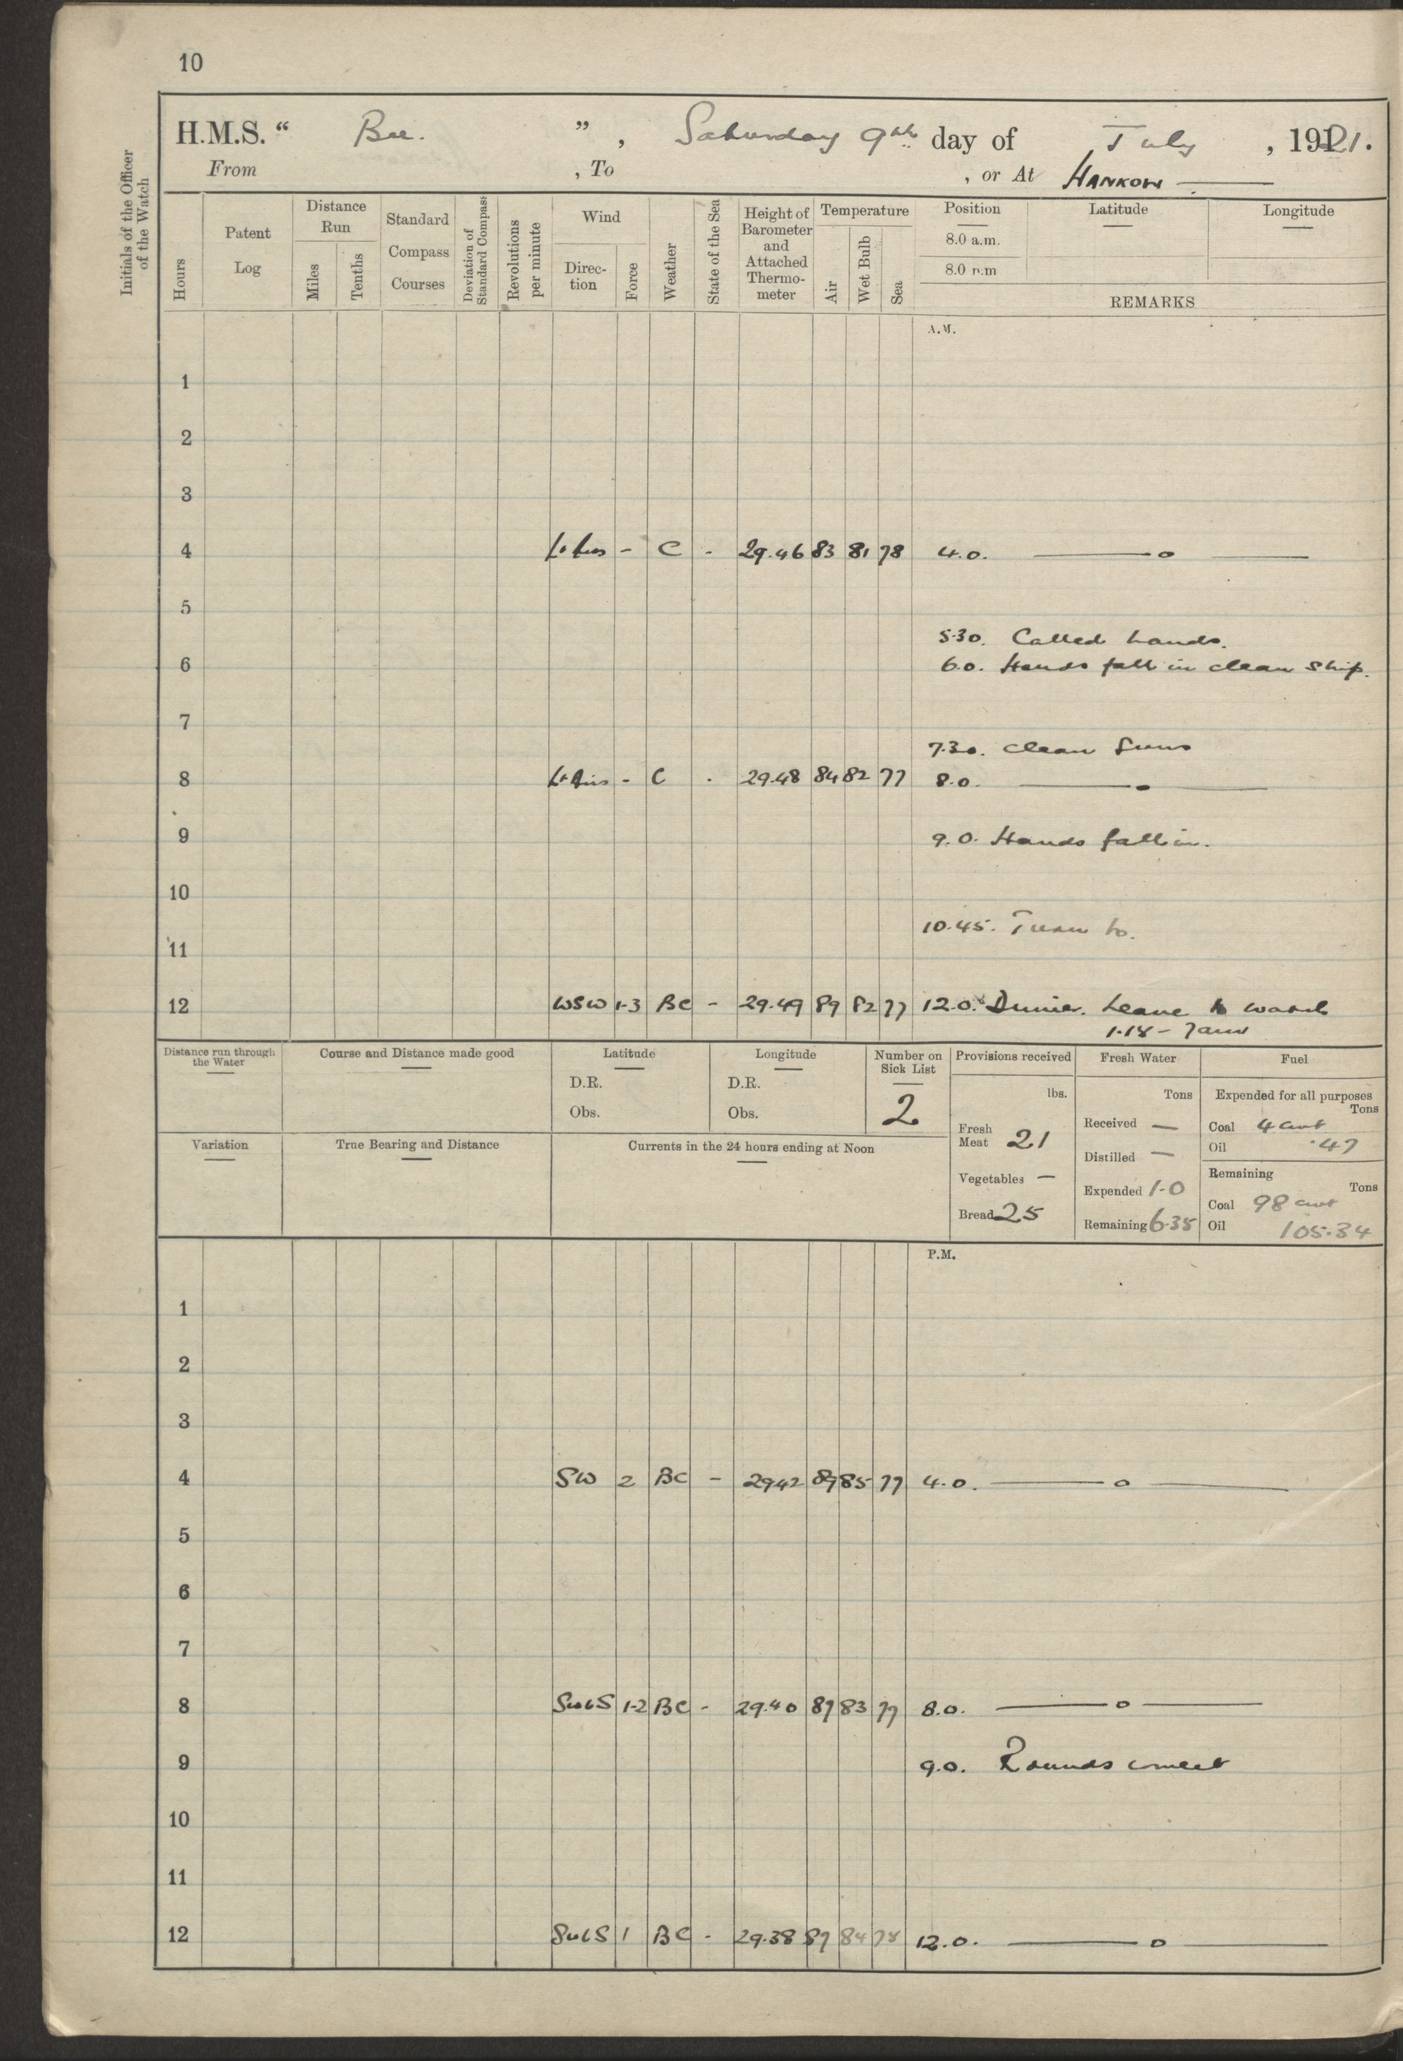 10
H.M.S. “ Bee. ” , Saturday 9th day of July , 1921.
From , To , or At HANKOW
Initials of the Officer of the Watch
Hours
Patent Log
Distance Run
Miles
Tenths
Standard Compass Courses
Deviation of Standard Compass
Revolutions per minute
Wind
Direc-tion
Force
Weather
State of the Sea
Height of Barometer and Attached Thermo-meter
Temperature
Air
Wet Bulb
Sea
Position
8.0 a.m.
8.0 p.m
Latitude
Longitude
REMARKS
A.M.
1
2
3
4 Lt Airs - C - 29.46 83 81 78 4.0. —o—
5
5.30. Called hands.
6 6.0. Hands fall in clean ship.
7
7.30. Clean Guns
8 Lt Airs - C - 29.48 84 82 77 8.0. —
9 9.0. Hands fall in.
10
10.45. Turn to.
11
12 WSW 1-3 BC - 29.49 89 82 77 12.0. Dinner. Leave to watch
1.15 - 7am
Distance run through the Water
Course and Distance made good
Latitude
D.R.
Obs.
Longitude
D.R.
Obs.
Number on Sick List
2
Provisions received
lbs.
Fresh Meat 21
Vegetables —
Bread 25
Fresh Water
Tons
Received —
Distilled —
Expended 1-0
Remaining 6.35
Fuel
Expended for all purposes
Tons
Coal 4 cwt
Oil .47
Remaining
Tons
Coal 98 cwt
Oil 105.34
Variation
True Bearing and Distance
Currents in the 24 hours ending at Noon
P.M.
1
2
3
4 SW 2 BC - 29.42 89 85 77 4.0. —o—
5
6
7
8 SWbS 1-2 BC - 29.40 87 83 77 8.0. —o—
9 9.0. Rounds correct
10
11
12 SWbS 1 BC - 29.38 87 84 78 12.0. —o—